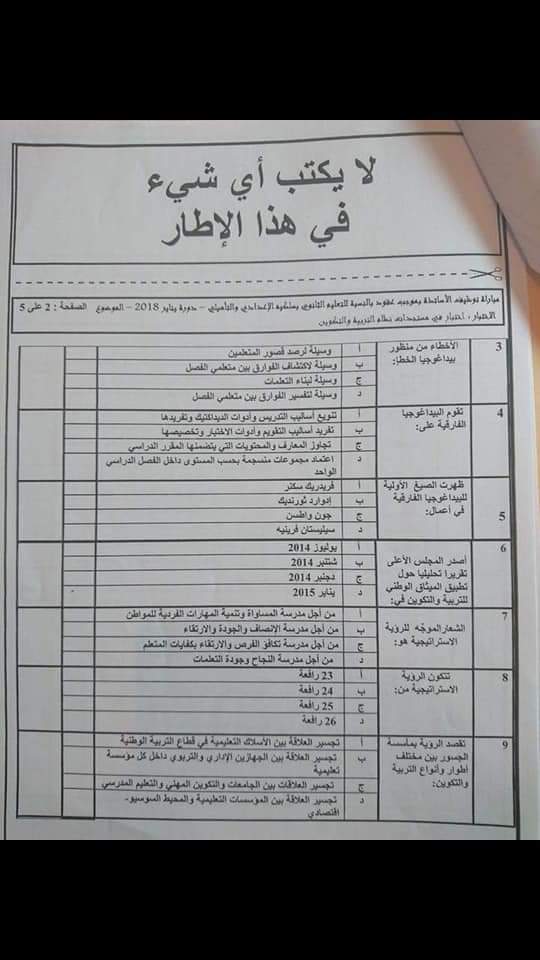 لا يكتب أي شيء
في هذا الإطار
مباراة توظيف الأساتذة بموجب عقود بالنسبة للتعليم الثانوي بسلكيه الإعدادي والتأهيلي – دورة يناير 2018 – الموضوع الصفحة : 2 على 5
الاختبار : اختبار في مستجدات نظام التربية والتكوين
3 الأخطاء من منظور بيداغوجيا الخطا:
أ وسيلة لرصد قصور المتعلمين
ب وسيلة لاكتشاف الفوارق بين متعلمي الفصل
ج وسيلة لبناء التعلمات
د وسيلة لتفسير الفوارق بين متعلمي الفصل
4 تقوم البيداغوجيا الفارقية على:
أ تنويع أساليب التدريس وأدوات الديداكتيك وتفريدها
ب تفريد أساليب التقويم وأدوات الاختبار وتخصيصها
ج تجاوز المعارف والمحتويات التي يتضمنها المقرر الدراسي
د اعتماد مجموعات منسجمة بحسب المستوى داخل الفصل الدراسي
الواحد
5 ظهرت الصيغ الأولية للبيداغوجيا الفارقية في أعمال:
أ فريدريك سكنر
ب إدوارد ثورنديك
ج جون واطسن
د سيليستان فرينيه
6 أصدر المجلس الأعلى تقريرا تحليليا حول تطبيق الميثاق الوطني للتربية والتكوين في:
أ يوليوز 2014
ب شتنبر 2014
ج دجنبر 2014
د يناير 2015
7 الشعار الموجّه للرؤية الاستراتيجية هو:
أ من أجل مدرسة المساواة وتنمية المهارات الفردية للمواطن
ب من أجل مدرسة الانصاف والجودة والارتقاء
ج من أجل مدرسة تكافؤ الفرص والارتقاء بكفايات المتعلم
د من أجل مدرسة النجاح وجودة التعلمات
8 تتكون الرؤية الاستراتيجية من:
أ 23 رافعة
ب 24 رافعة
ج 25 رافعة
د 26 رافعة
9 تقصد الرؤية بمأسسة الجسور بين مختلف أطوار وأنواع التربية والتكوين:
أ تجسير العلاقة بين الأسلاك التعليمية في قطاع التربية الوطنية
ب تجسير العلاقة بين الجهازين الإداري والتربوي داخل كل مؤسسة
تعليمية
ج تجسير العلاقات بين الجامعات والتكوين المهني والتعليم المدرسي
د تجسير العلاقة بين المؤسسات التعليمية والمحيط السوسيو-
اقتصادي